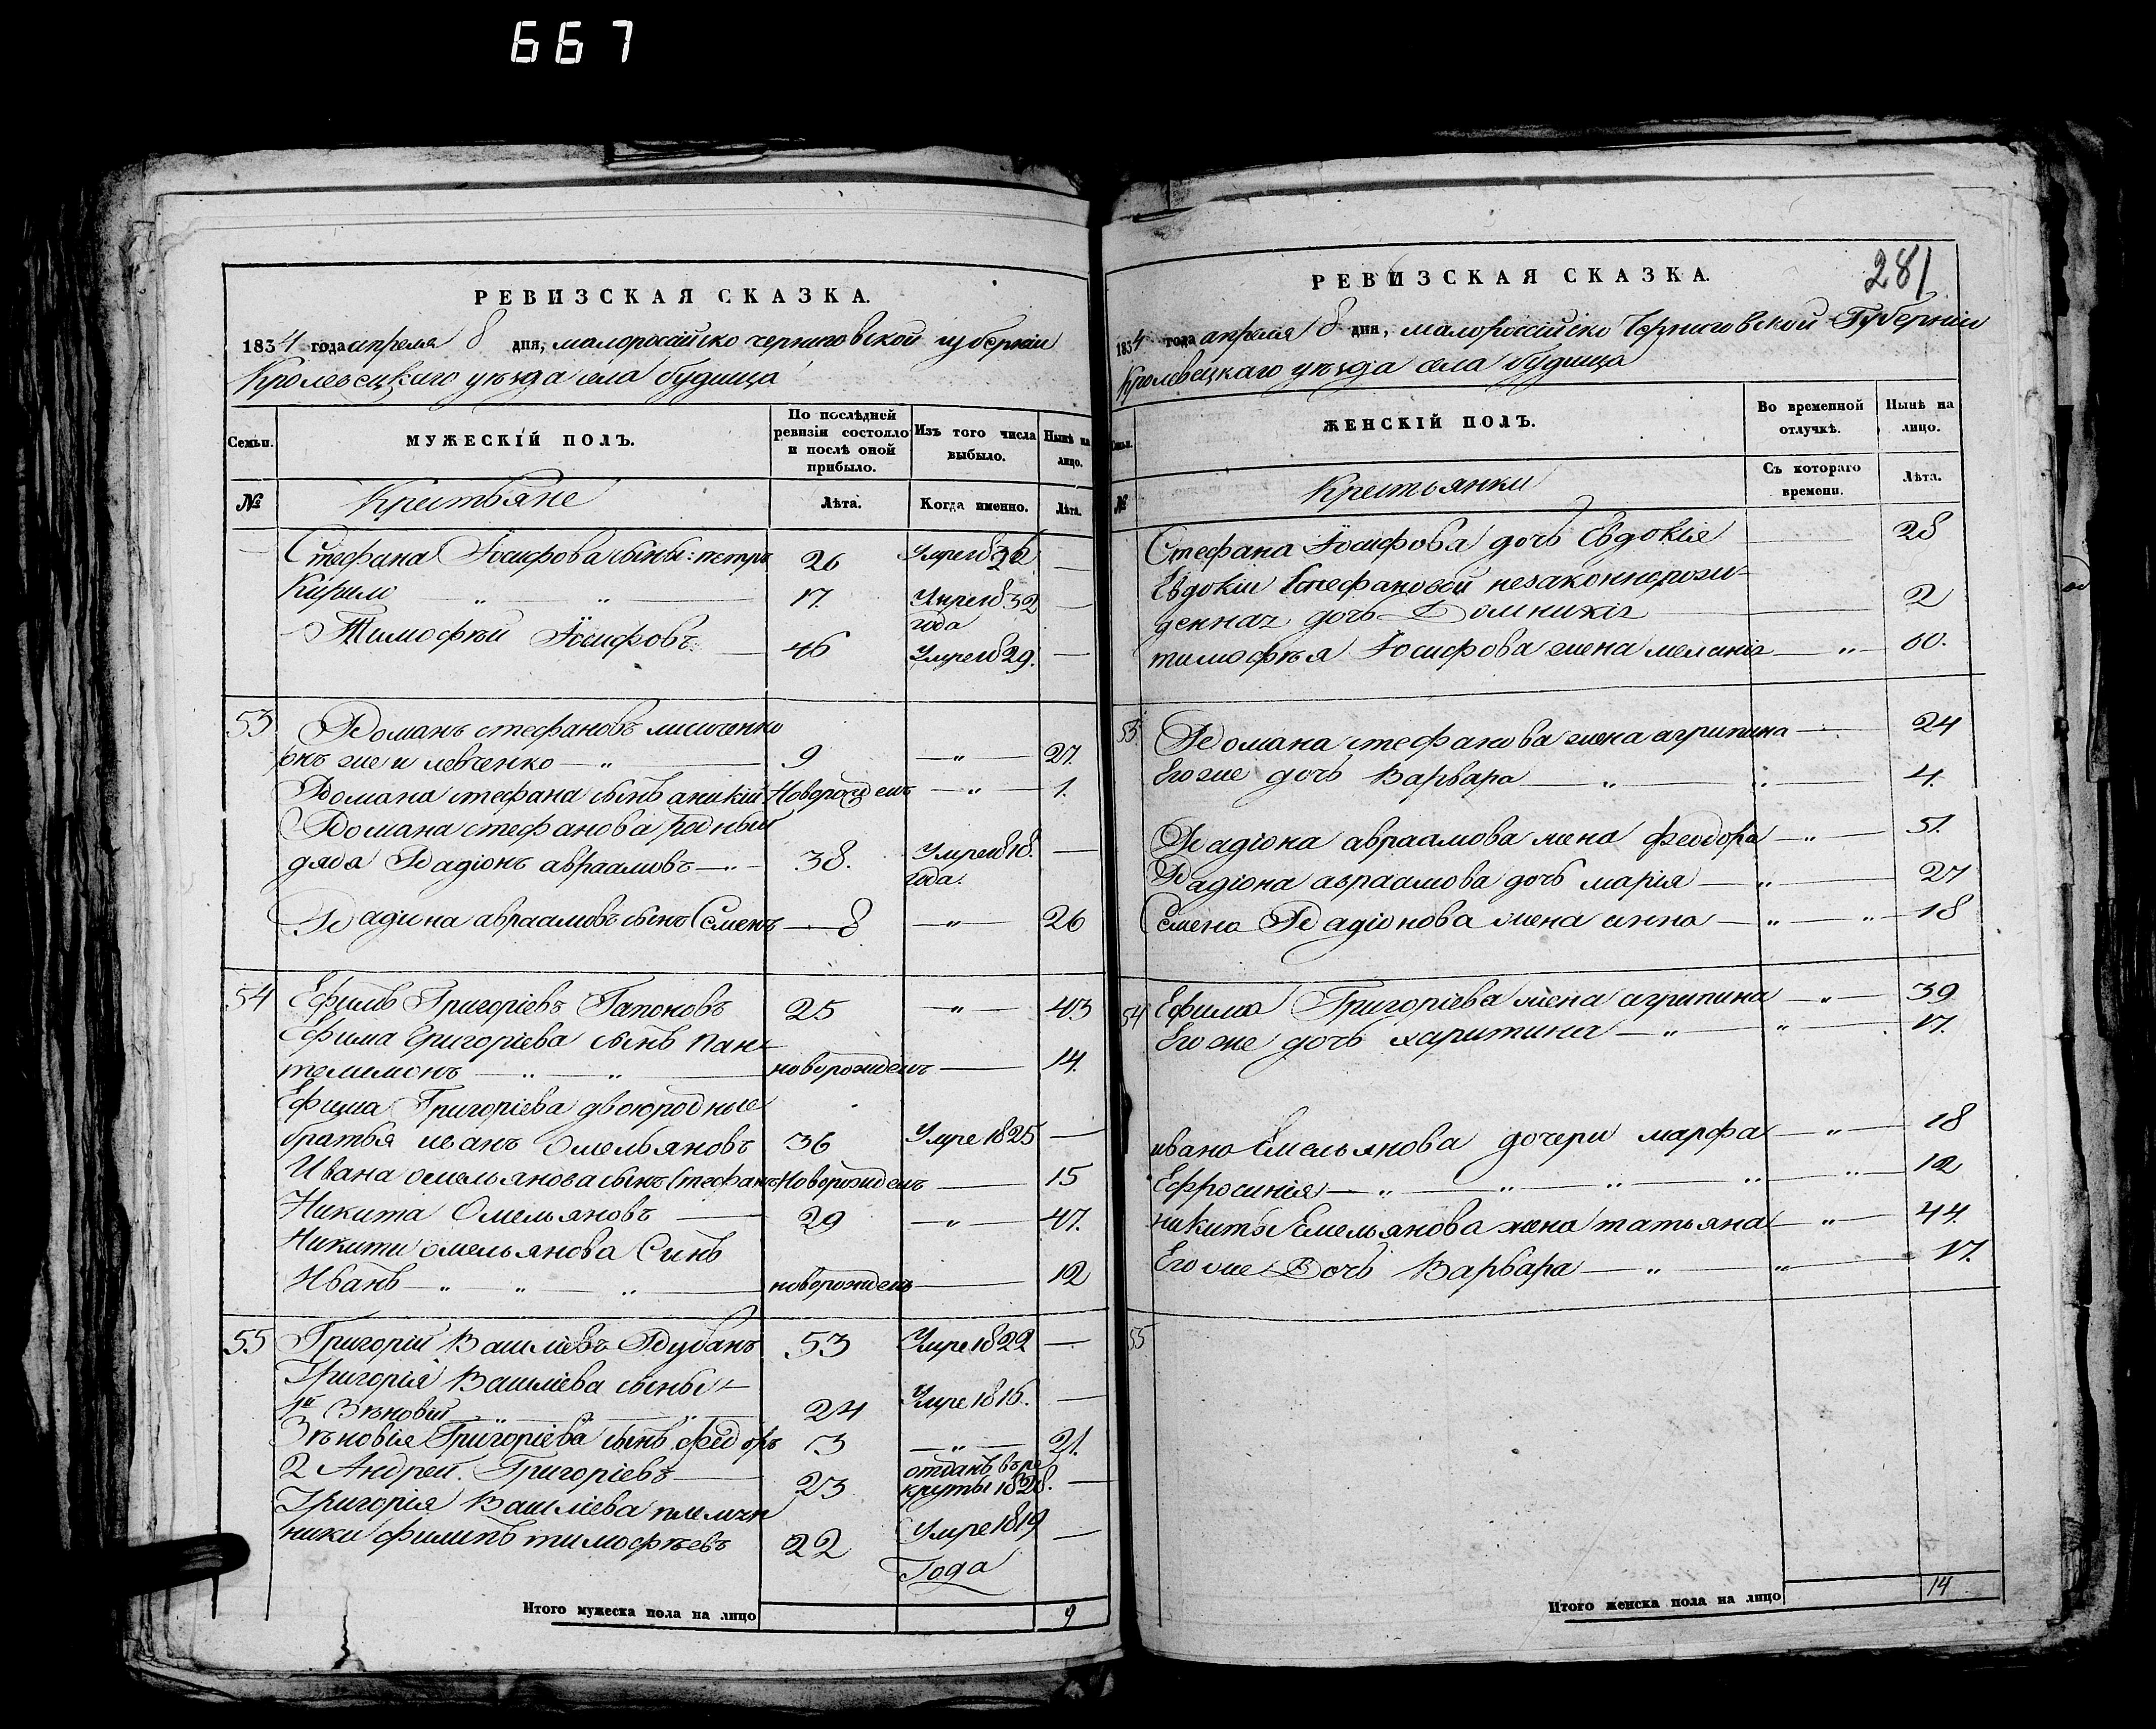 667
РЕВИЗСКАЯ СКАЗКА.
1834 года апреля 8 дня, малоросійско черниговской губерніи
Кролевецкаго уѣзда села будища
Семьи.
МУЖЕСКІЙ ПОЛЪ.
По послѣдней ревизіи состояло и послѣ оной прибыло.
Изъ того числа выбыло.
Нынѣ на лицо.
№
Крестьяне
Лѣта.
Когда именно.
Лѣта.
Стефана Іосифова сыны: петръ 26 Умре —
Кирило „ „ 17. Умре 1832 года —
Тимофѣй Іосифовъ — 46 Умре 1829. —
53 Романъ стефановъ
онъ же и левченко — „ — 9 — „ — 27.
Романа стефана сынъ аникій Новорожденъ — „ — 1.
Романа стефанова родный
дядя Радіонъ авраамовъ — „ — 38. Умре 1818. года. —
Радиона авраамовъ сынъ Семенъ — 8 — „ — 26
54 Ефимъ Григоріевъ Гапоновъ 25 — „ — 43
Ефима Григоріева сынъ пан-
телимонъ — „ — „ — новорожденъ — 14.
Ефима Григоріева двоюродные
братья иванъ Омельяновъ 36 Умре 1825 —
Ивана омельянова сынъ Стефанъ Новорожденъ — 15
Никита Омельяновъ — 29 — „ — 47.
Никити омельянова Синъ
Иванъ — „ — „ — „ — новорожденъ — 12
55 Григорій Василіевъ Рубанъ 53 Умре 1822 —
Григорія Василіева сыны
1й Зѣновій 24 Умре 1816. —
Зѣновія Григоріева сынъ федоръ 3 — „ — 21.
2 Андрей Григоріевъ — 23 отданъ въ ре
круты 1828. —
Григорія Василіева племян
ники филипъ тимофѣевъ 22 Умре 1819 —
Года
Итого мужеска пола на лицо 9
РЕВИЗСКАЯ СКАЗКА.
281
1834 года апреля 8 дня, малоросійско Черниговской Губерніи
Кролевецкаго уѣзда села будища
Семьи.
ЖЕНСКІЙ ПОЛЪ.
Во временной отлучкѣ.
Нынѣ на лицо.
№
Крестьянки
Съ котораго времени.
Лѣта.
Стефана Іосифова дочь Евдокія — 28
Евдокіи Стефановой незаконнорож-
денная дочь Домникія — 2
тимофѣя Іосифова жена меланія — „ — 60.
53. Романа стефанова жена агрипина — 24
Его же дочь Варвара — „ — „ — 4.
Радіона авраамова жена феодора — „ — 51.
Радіона авраамова дочь марія — „ — 27
Семена Радіонова жена анна — „ — „ — 18
54 Ефима Григоріева жена агрипина — „ — 39
Его же дочь харитина — „ — „ — 17.
ивана Емельянова дочери марфа — „ — 18
Ефросинія — „ — „ — „ — „ — „ — 12
никиты Емельянова жена татьяна — „ — 44.
Его же Дочь Варвара — „ — „ — 17.
55
Итого женска пола на лицо 14